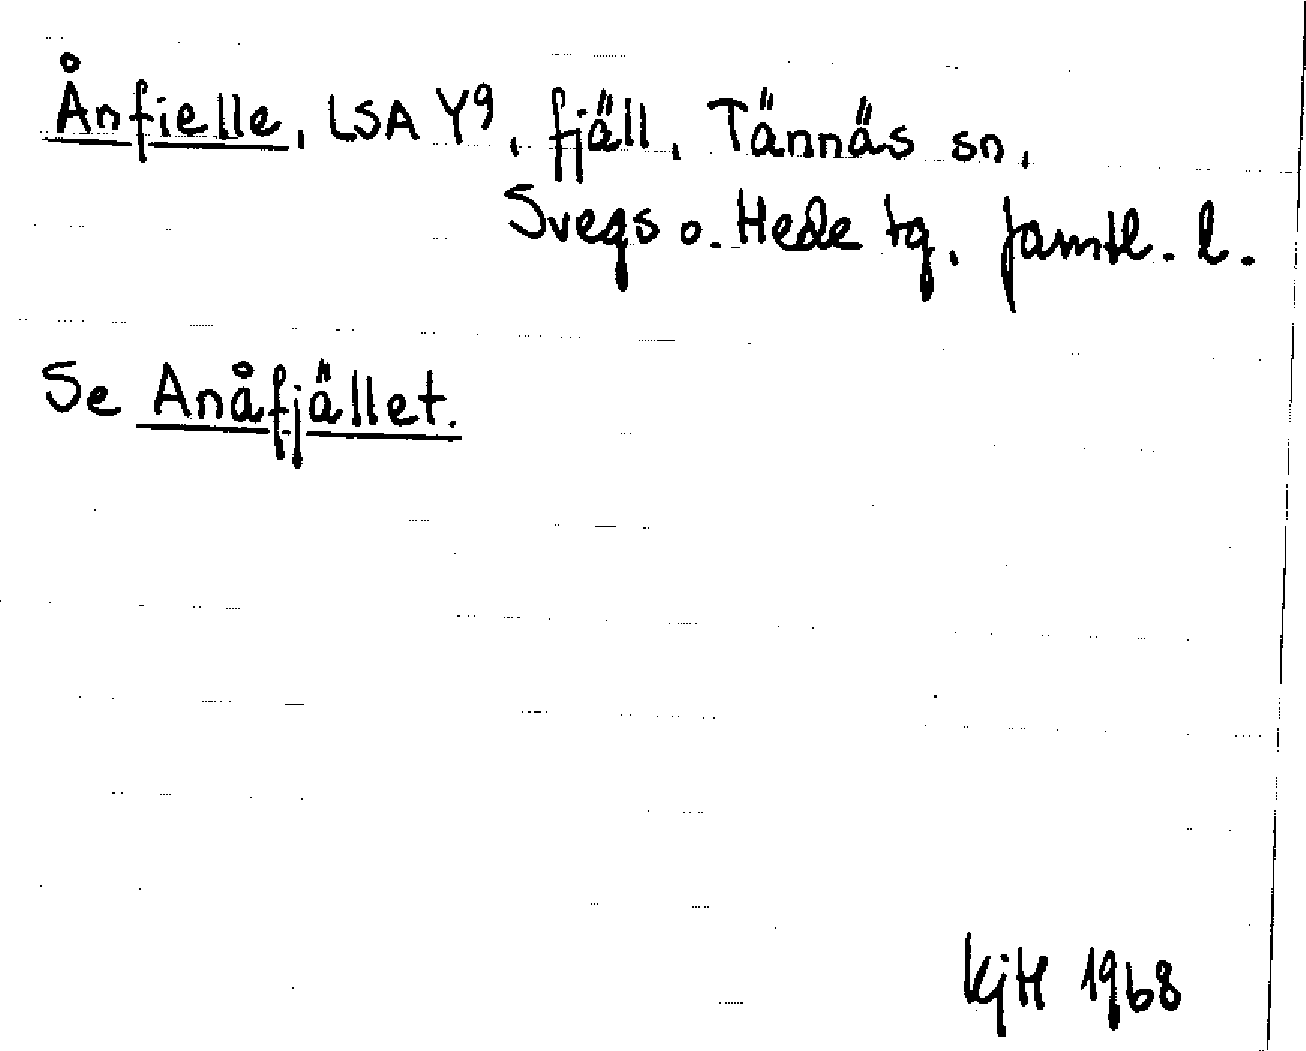 Ånfielle, LSA Y9, fjäll, Tännäs sn,
Svegs o. Hede tg, Jämtl. l.
Se Anåfjället.
KjH 1968